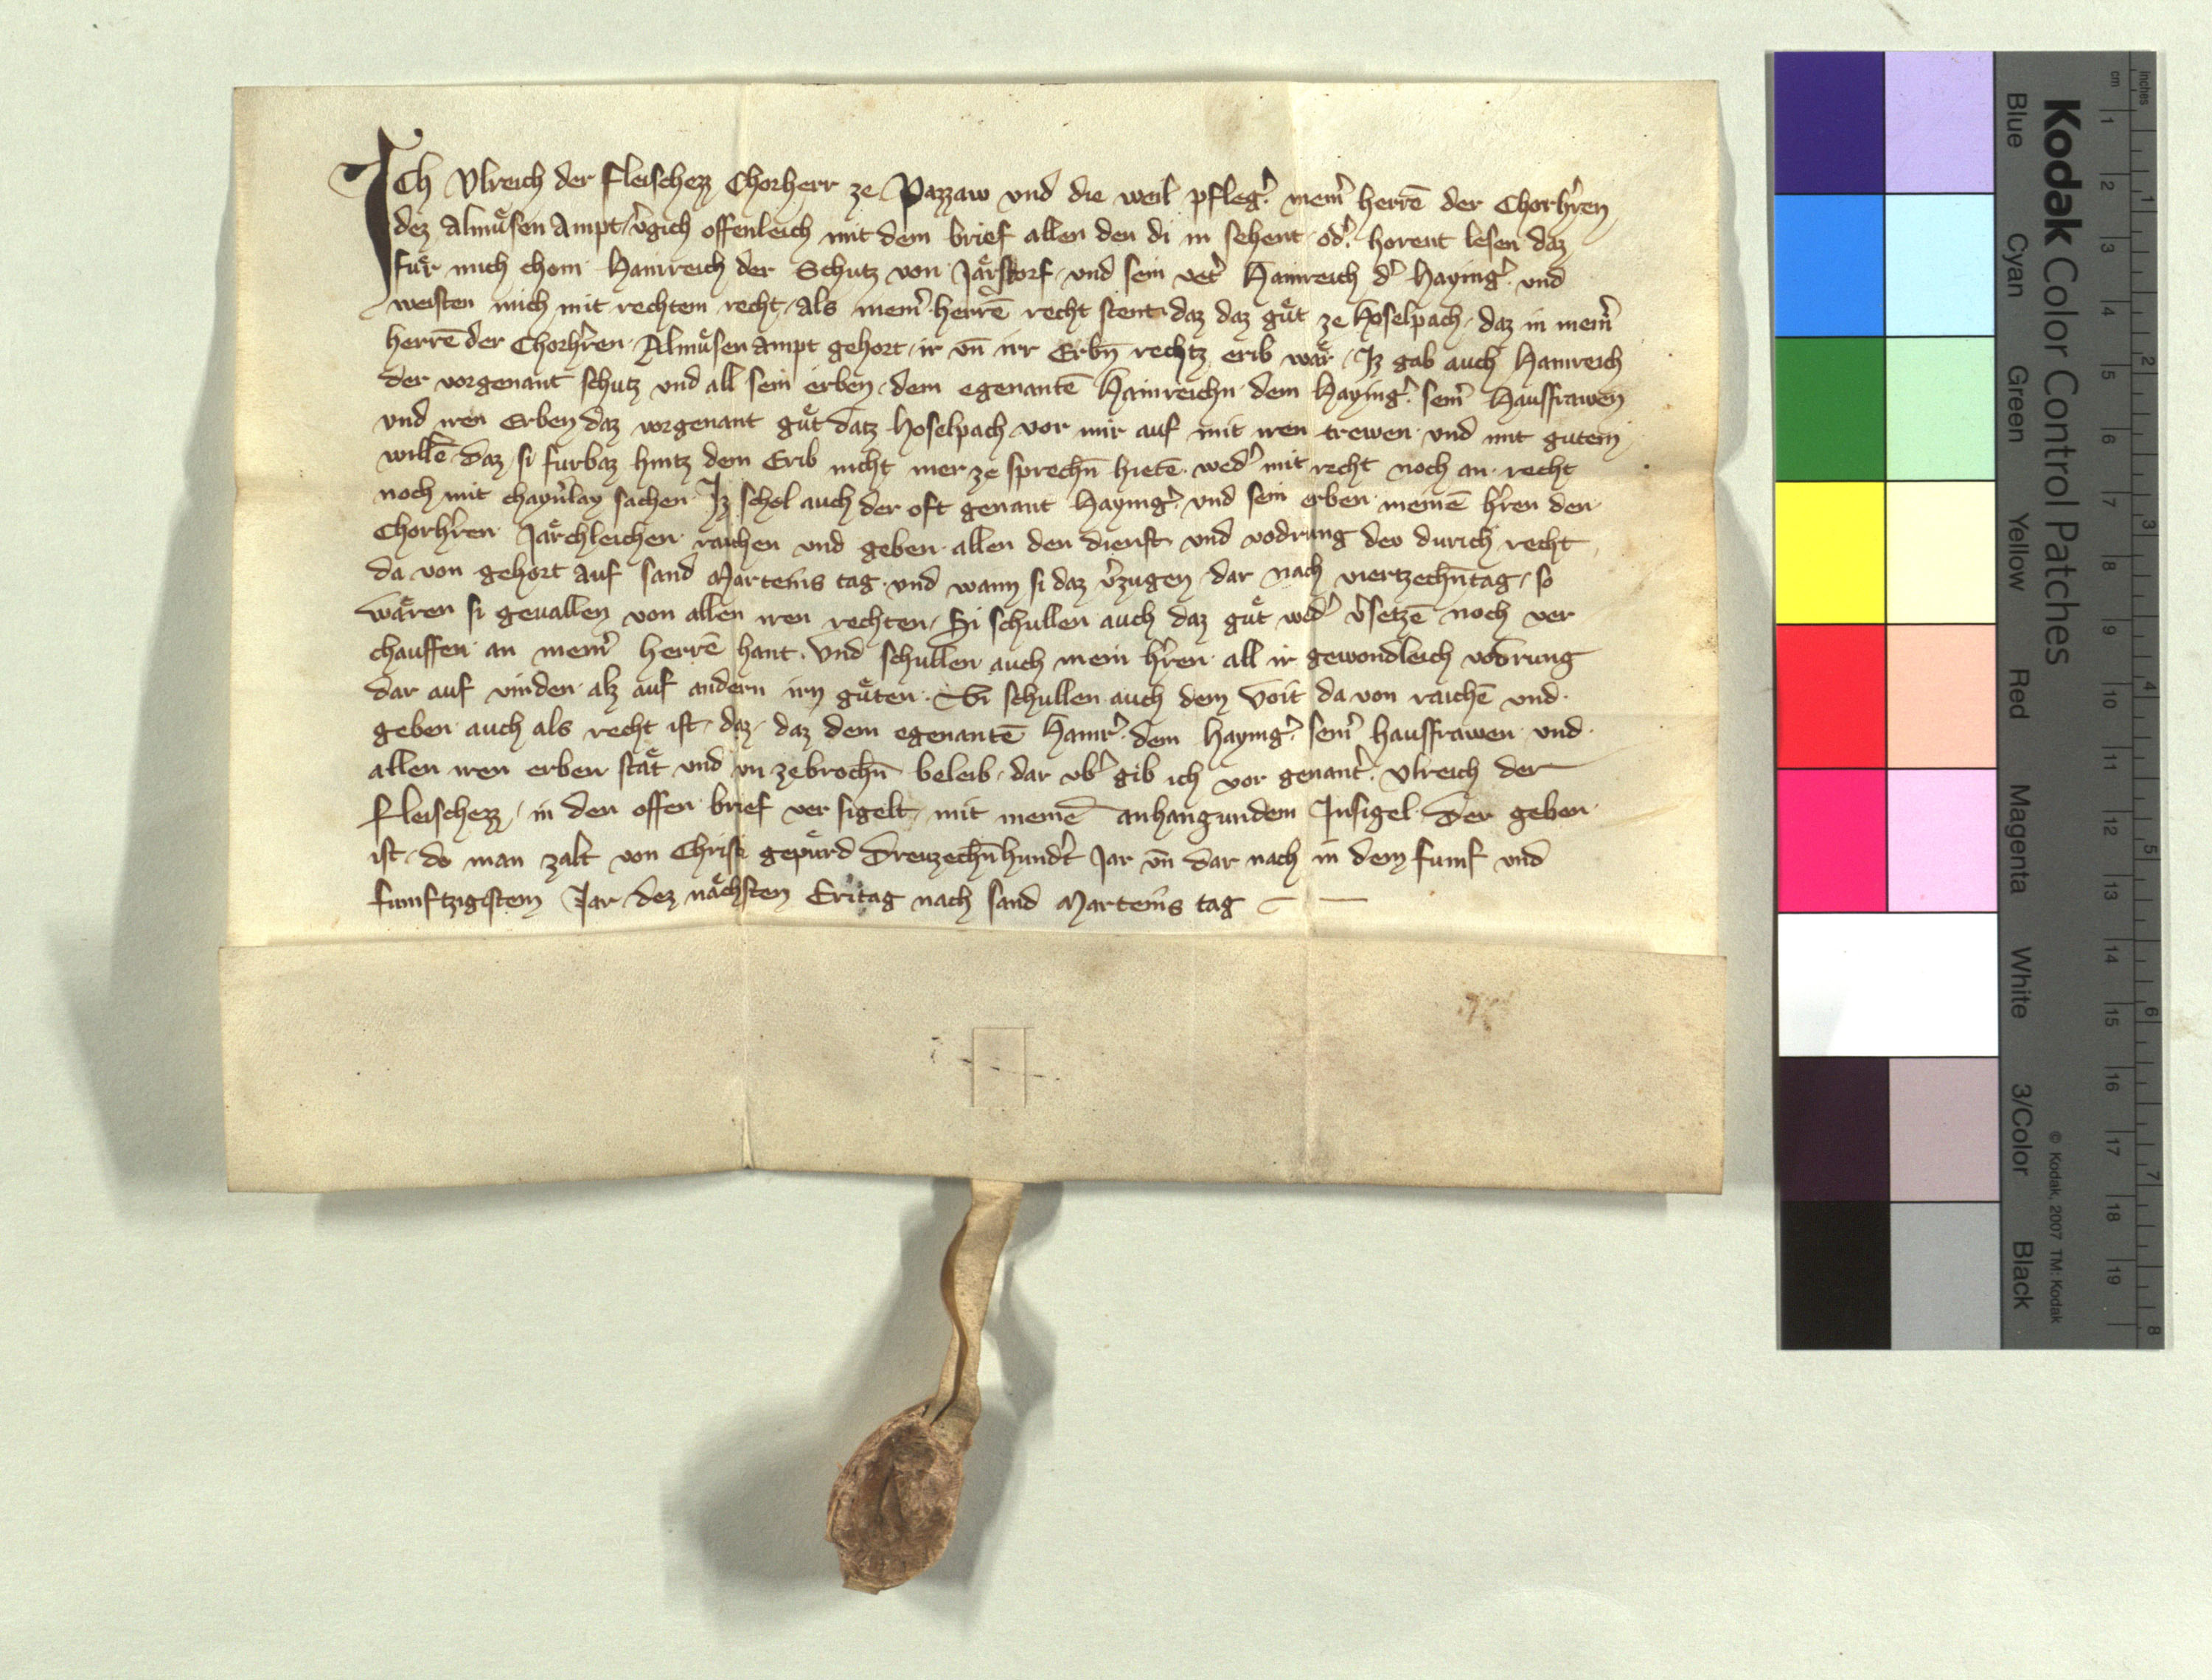 Ich Vlreich der Fleischezz Chorherr ze Pazzaw vnd die weil pfleg͛ mem͛ herrē der Chorh͛ren
dez Almuͤsen Ampt v͛gich offenleich mit dem brief allen den di in sehent od͛ horent lesen daz
fuͤr mich chom Hainreich der Schutz von Jaͤrstorf vnd sein vet͛ Hainreich d͛ Haying͛ vnd
weisten mich mit rechtem recht als mem͛ herrē recht stent daz daz guͤt ze Hoselpach daz in mem͛
herrē der Chorh͛ren Almuͤsen Ampt gehort ir vn̄ irr Erbn̄ rechtz erib waͤr Iz gab auch Hainreich
der vorgenant schutz vnd all sein erben dem egenantē Hainreichn dem Haying͛ sem͛ Hausfrawen
vnd iren Erben daz vorgenant guͤt datz Hoselpach vor mir auf mit iren trewen vnd mit gutem
willē daz si furbaz hintz dem Erib nicht mer ze sprechn̄ hietē wed͛ mit recht noch an recht
noch mit chayn͛lay sachen Iz schol auch der oft genant Haying͛ vnd sein erben meinē h͛ren den
Chorh͛ren Jaͤrchleichen raichen vnd geben allen den dienst vnd vodrung deo durich recht
da von gehort auf sand Marteins tag vnd wann si daz v͛zugen dar nach viertzechn̄tag so
waͤren si geuallen von allen iren rechten Si schullen auch daz guͤt wed͛ v͛setzē noch ver
chauffen an mem͛ herrē hant vnd schullen auch mein h͛ren all ir gewondleich vodrung
dar auf vinden alz auf andern irn guͤten Si schullen auch dem voit da von raichē vnd
geben auch als recht ist daz daz dem egenantē Hainr͛ dem Haying͛ sem͛ hausfrawen vnd
allen iren erben staͤt vnd vn zebrochn̄ beleib dar vb͛ gib ich vor genant͛ Vlreich der
Fleischezz in den offen brief ver sigelt mit meinē anhangundem Insigel Der geben
ist do man zalt von Christi gepuͤrd Dreuzechn̄hund͛t Jar vn̄ dar nach in dem fumf vnd
fumftzigistem Jar dez naͤchsten Eritag nach sand Marteins tag
Kodak Color Control Patches
Blue Cyan Green Yellow Red Magenta White 3/Color Black
© Kodak, 2007 TM: Kodak
inches 1 2 3 4 5 6 7 8
cm 1 2 3 4 5 6 7 8 9 10 11 12 13 14 15 16 17 18 19